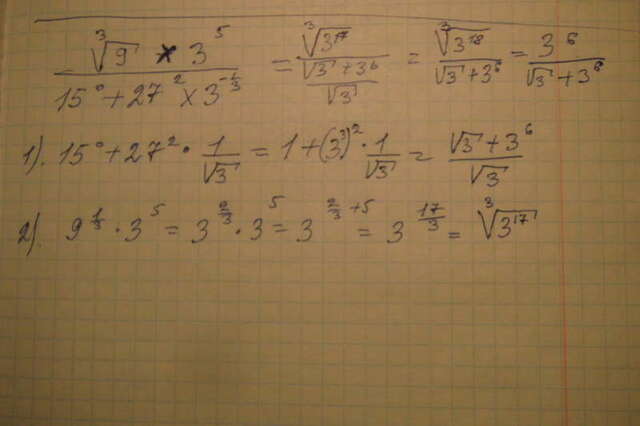 ∛9 × 3^5 / (15° + 27^2 × 3^(-1/3)) = ∛(3^17) / ((√3 + 3^6) / √3) = ∛(3^18) / (√3 + 3^6) = 3^6 / (√3 + 3^6)
1). 15° + 27^2 · 1/√3 = 1 + (3^3)^2 · 1/√3 = (√3 + 3^6) / √3
2). 9^(1/3) · 3^5 = 3^(2/3) · 3^5 = 3^(2/3 + 5) = 3^(17/3) = ∛(3^17)